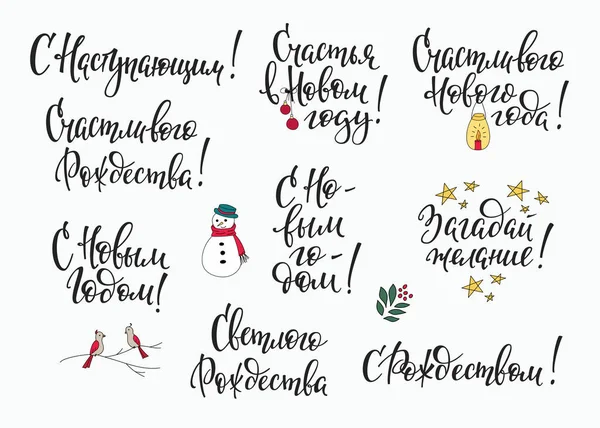 С Наступающим!
Счастья
в Новом
году!
Счастливого
Нового
года!
Счастливого
Рождества!
С Но-
вым
го-
дом!
Загадай
желание!
С Новым
Годом!
Светлого
Рождества
С Рождеством!